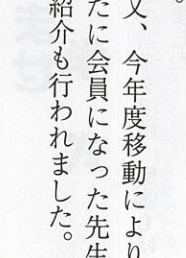 又、今年度移動により
たに会員になった先生
紹介も行われました。